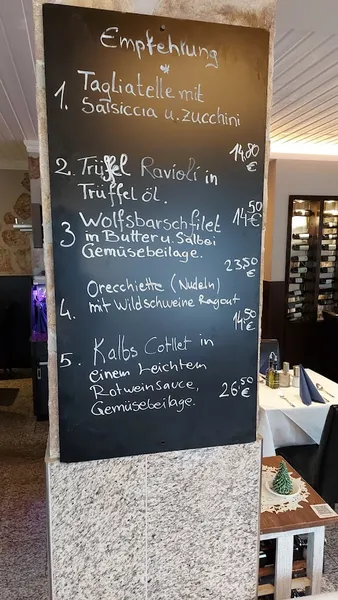 Empfehrung
*
1. Tagliatelle mit
Salsiccia u. zucchini
14,80
€
2. Trüffel Ravioli in
Trüffel öl.
14,50
€
3 Wolfsbarschfilet
in Butter u. Salbei
Gemüsebeilage.
23,50
€
Orecchiette (Nudeln)
4. mit Wildschweine Ragout
14,50
€
5. Kalbs Cotllet in
einem Leichtem
Rotweinsauce,
Gemüsebeilage.
26,50
€